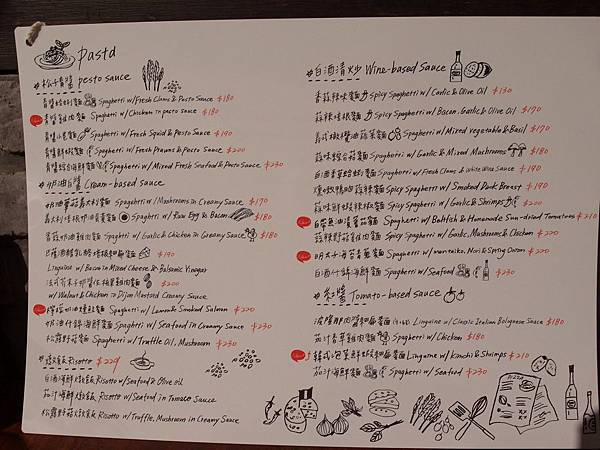 Pasta
#松子青醬 pesto sauce
青醬蛤蜊麵 Spaghetti w/Fresh Clams & Pesto Sauce $180
青醬雞肉麵 Spaghetti w/Chicken in pesto sauce $180
青醬小卷麵 Spaghetti w/Fresh Squid & Pesto Sauce $190
青醬鮮蝦麵 Spaghetti w/Fresh Prawns & Pesto Sauce $200
青醬綜合海鮮麵 Spaghetti w/Mixed Fresh Seafood & Pesto Sauce $230
#奶油白醬 Cream-based sauce
奶油蘑菇義大利麵 Spaghetti w/Mushrooms in Creamy Sauce $170
義大利培根奶油蛋黃麵 Spaghetti w/ Raw Egg & Bacon $180
蒜菇奶油雞肉麵 Spaghetti w/ Garlic & Chicken in Creamy Sauce $180
巴薩米醋乳酪培根細扁麵 $190
Linguine w/ Bacon in Mixed Cheese & Balsamic Vinegar
法式芥末籽堅果雞肉麵 $200
w/ Walnut & Chicken in Dijon Mustard Creamy Sauce
檸檬奶油燻鮭麵 Spaghetti w/ Lemon & Smoked Salmon $220
奶油什錦海鮮麵 Spaghetti w/ Seafood in Creamy Sauce $230
松露野菇麵 Spaghetti w/Truffle Oil, Mushroom $230
#燉飯 Risotto $229
白酒海鮮燉飯 Risotto w/Seafood & Olive oil
茄汁海鮮燉飯 Risotto w/Seafood in Tomato Sauce
松露野菇燉飯 Risotto w/Truffle, Mushroom in Creamy Sauce
#白酒清炒 Wine-based Sauce
香蒜辣味麵 Spicy Spaghetti w/ Garlic & Olive Oil $130
蒜辣培根麵 Spicy Spaghetti w/ Bacon, Garlic & Olive Oil $170
義式橄欖油蔬菜麵 Spaghetti w/ Mixed Vegetable & Basil $170
蒜味綜合菇麵 Spaghetti w/ Garlic & Mixed Mushrooms $180
白酒香蒜蛤蜊麵 Spaghetti w/ Fresh Clams & White Wine Sauce $190
煙燻鴨胸蒜辣麵 Spicy Spaghetti w/ Smoked Duck Breast $190
蒜味鮮蝦辣椒麵 Spicy Spaghetti w/ Garlic & Shrimps $200
Spaghetti w/ Batfish & Homemade Sun-dried Tomatoes $210
蒜辣野菇雞肉麵 Spicy Spaghetti w/ Garlic, Mushroom & Chicken $220
明太子海苔青蔥麵 Spaghetti w/ mentaiko, Nori & Spring Onion $220
白酒什錦海鮮麵 Spaghetti w/ Seafood $230
#紅醬 Tomato-based sauce
波隆那肉醬細扁麵 Linguine w/ Classic Italian Bolognese Sauce $180
茄汁香草雞肉麵 Spaghetti w/ Chicken $180
韓式泡菜鮮蝦細扁麵 Linguine w/ Kimchi & Shrimps $210
茄汁海鮮麵 Spaghetti w/ Seafood $230